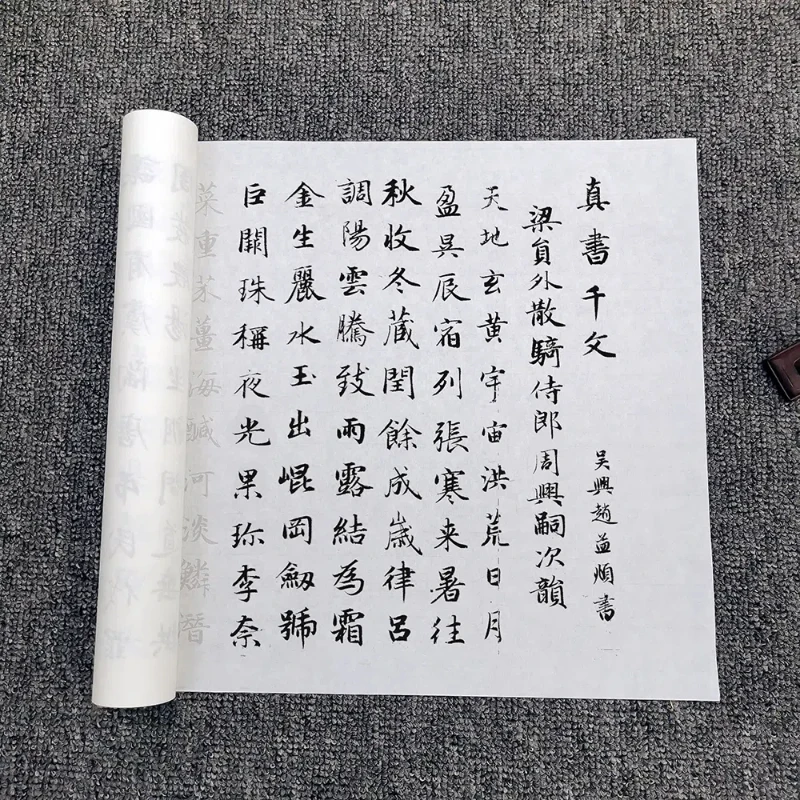 真書千文
吳興趙孟順書
梁員外散騎侍郎周興嗣次韻
天地玄黃宇宙洪荒日月
盈昃辰宿列張寒来暑往
秋收冬藏閏餘成歲律呂
調陽雲騰致雨露結為霜
金生麗水玉出崐岡劒號
巨闕珠稱夜光果珎李柰
菜重芥薑海鹹河淡鱗潛